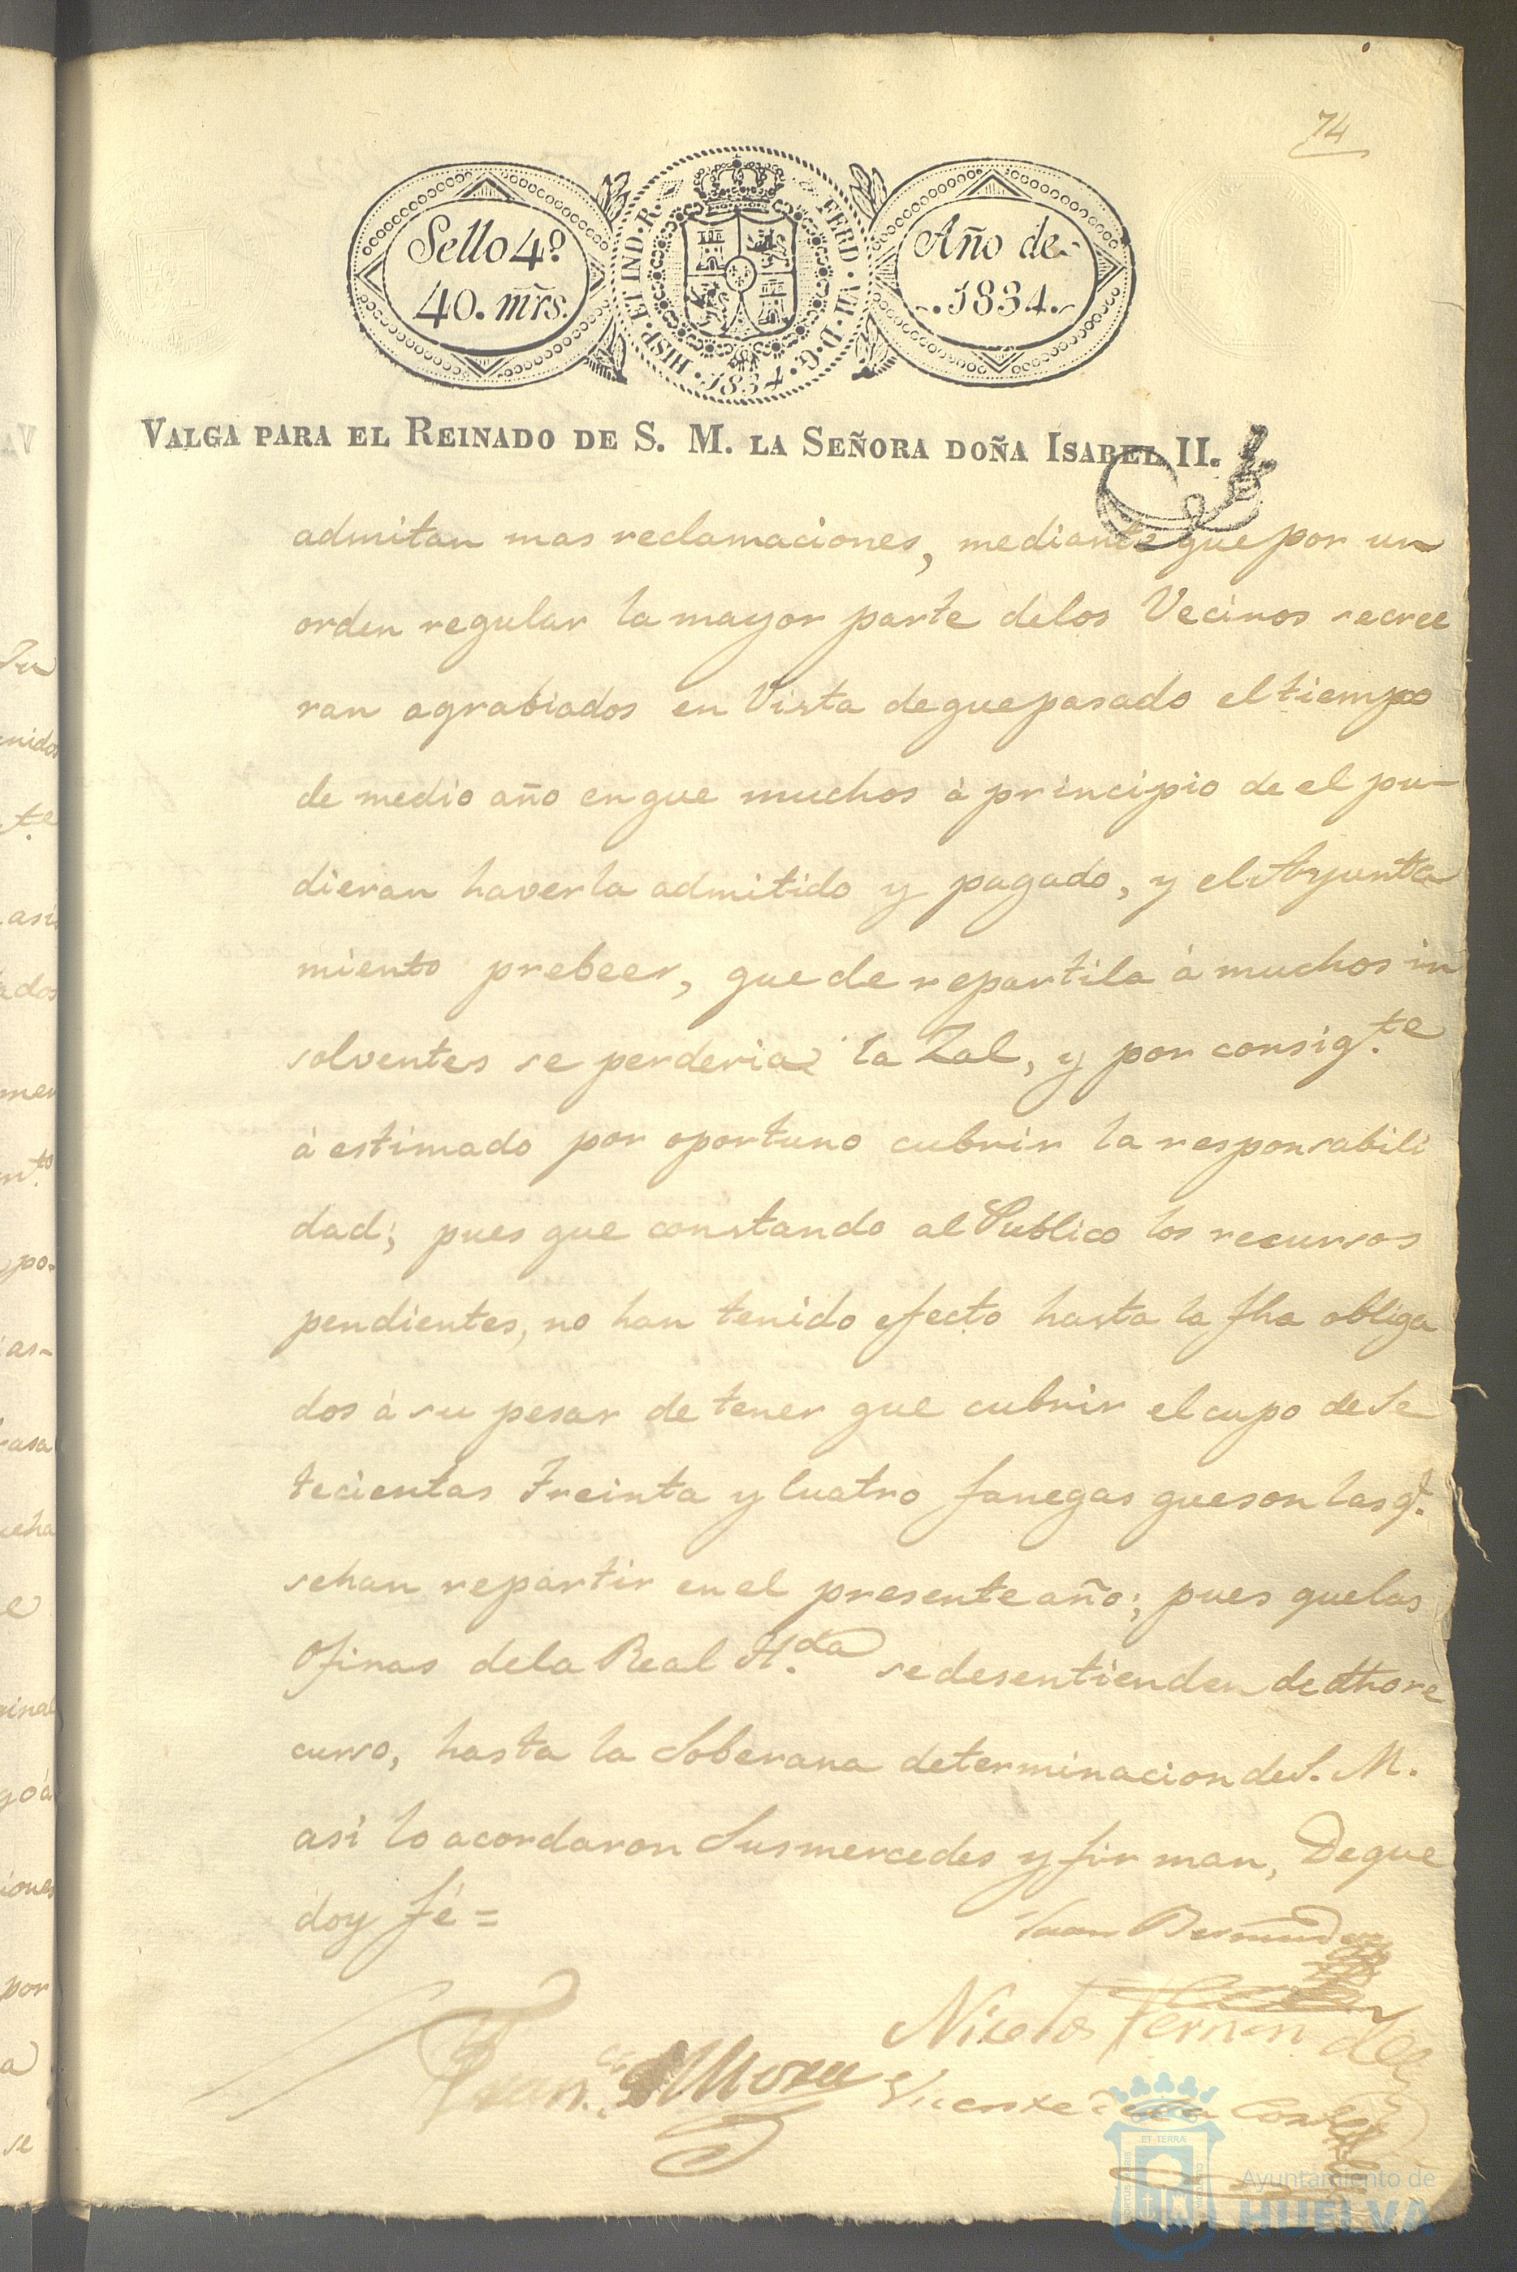 74
Sello 4º
40. mrs.
HISP. ET IND. R. FERD. VII. D. G. 1834.
Año de
1834.
VALGA PARA EL REINADO DE S. M. LA SEÑORA DOÑA ISABEL II.
admitan mas reclamaciones, mediante que por un
orden regular la mayor parte delos Vecinos secree
ran agrabiados en Vista deque pasado el tiempo
de medio año enque muchos à principio de el pu-
dieran haverla admitido y pagado, y el Ayunta
miento prebeer, que de repartila à muchos in
solventes se perderia la Zal, y por consig.te
à estimado por oportuno cubrir la responsabili
dad; pues que constando al Publico los recursos
pendientes, no han tenido efecto hasta la fha obliga
dos à su pesar de tener que cubrir el cupo de Se
tecientas Treinta y Cuatro fanegas queson las q.e
sehan repartir en el presente año; pues quelas
Ofinas dela Real H.da sedesentienden de dho re
curso, hasta la Soberana determinacion de S. M.
asi lo acordaron Susmercedes y firman, Deque
doy fé =
Juan Bermudez
Niceto Fernandez
Fran.co Mora
Vicente de la Corte
ET TERRÆ
Ayuntamiento de
HUELVA